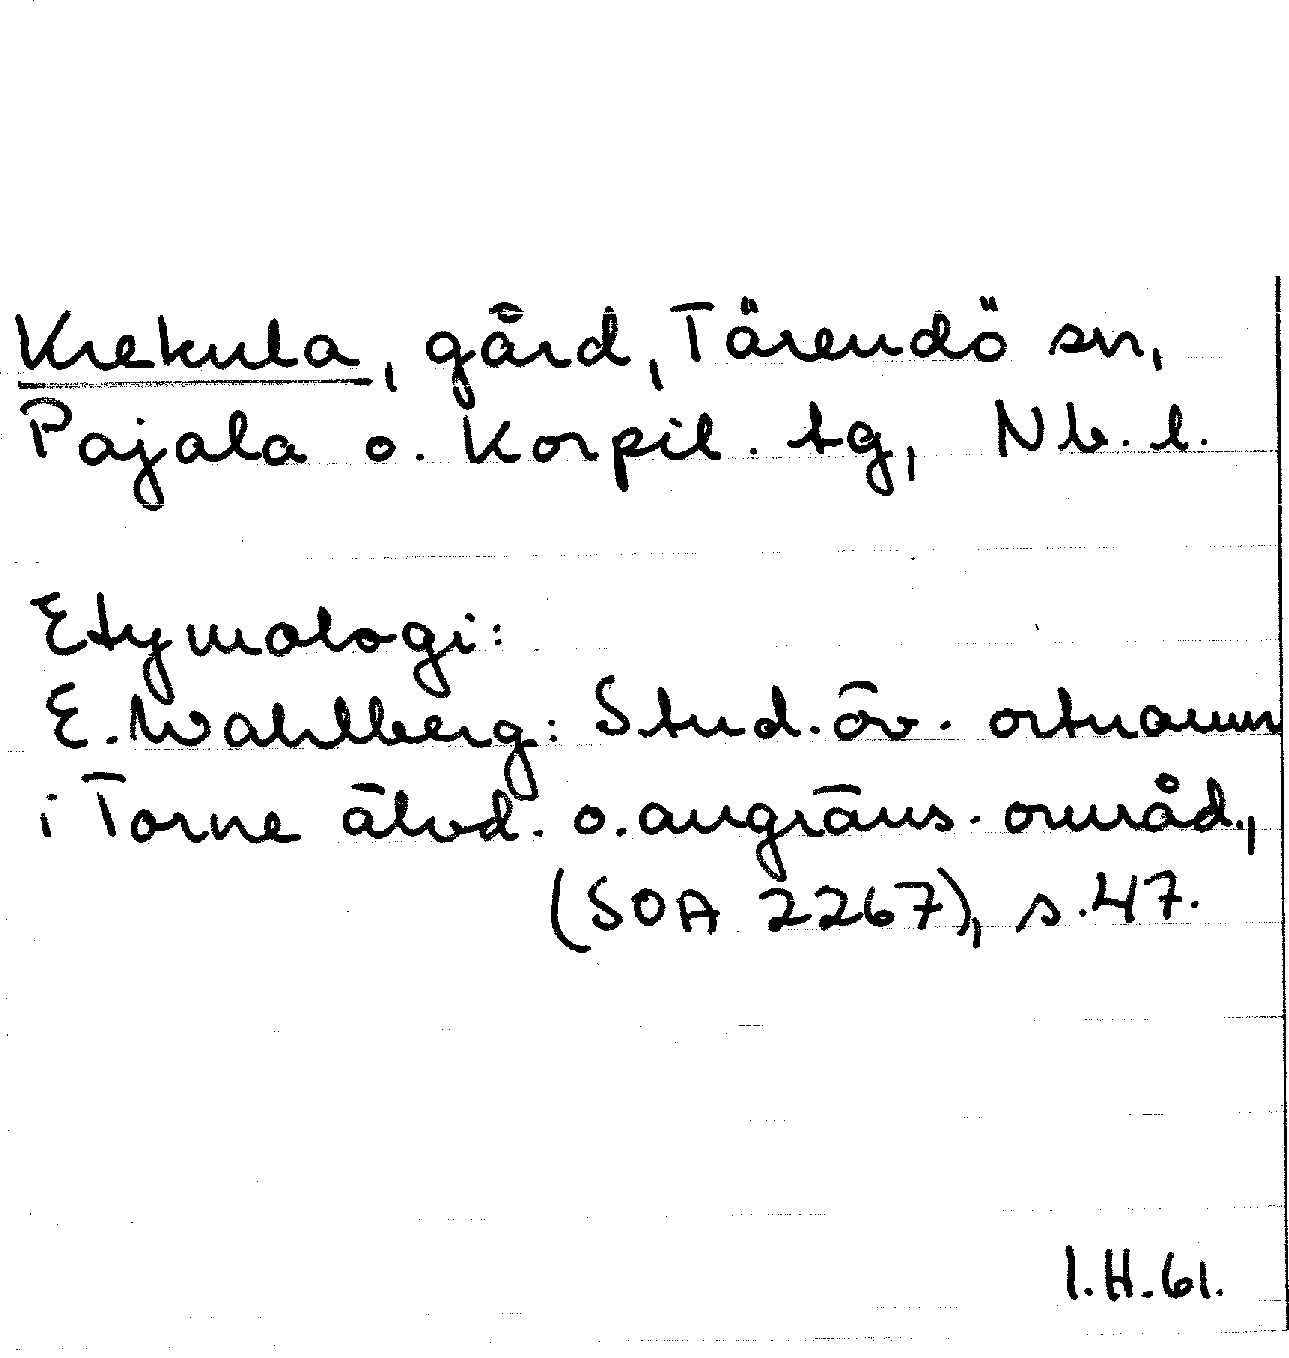 Krekula, gård, Tärendö sn,
Pajala o. Korpil. tg, Nb. l.
Etymologi:
E. Wahlberg: Stud. öv. ortnamn
i Torne älvd. o. angräns. områd.,
(SOA 2267), s. 47.
I.H. 61.